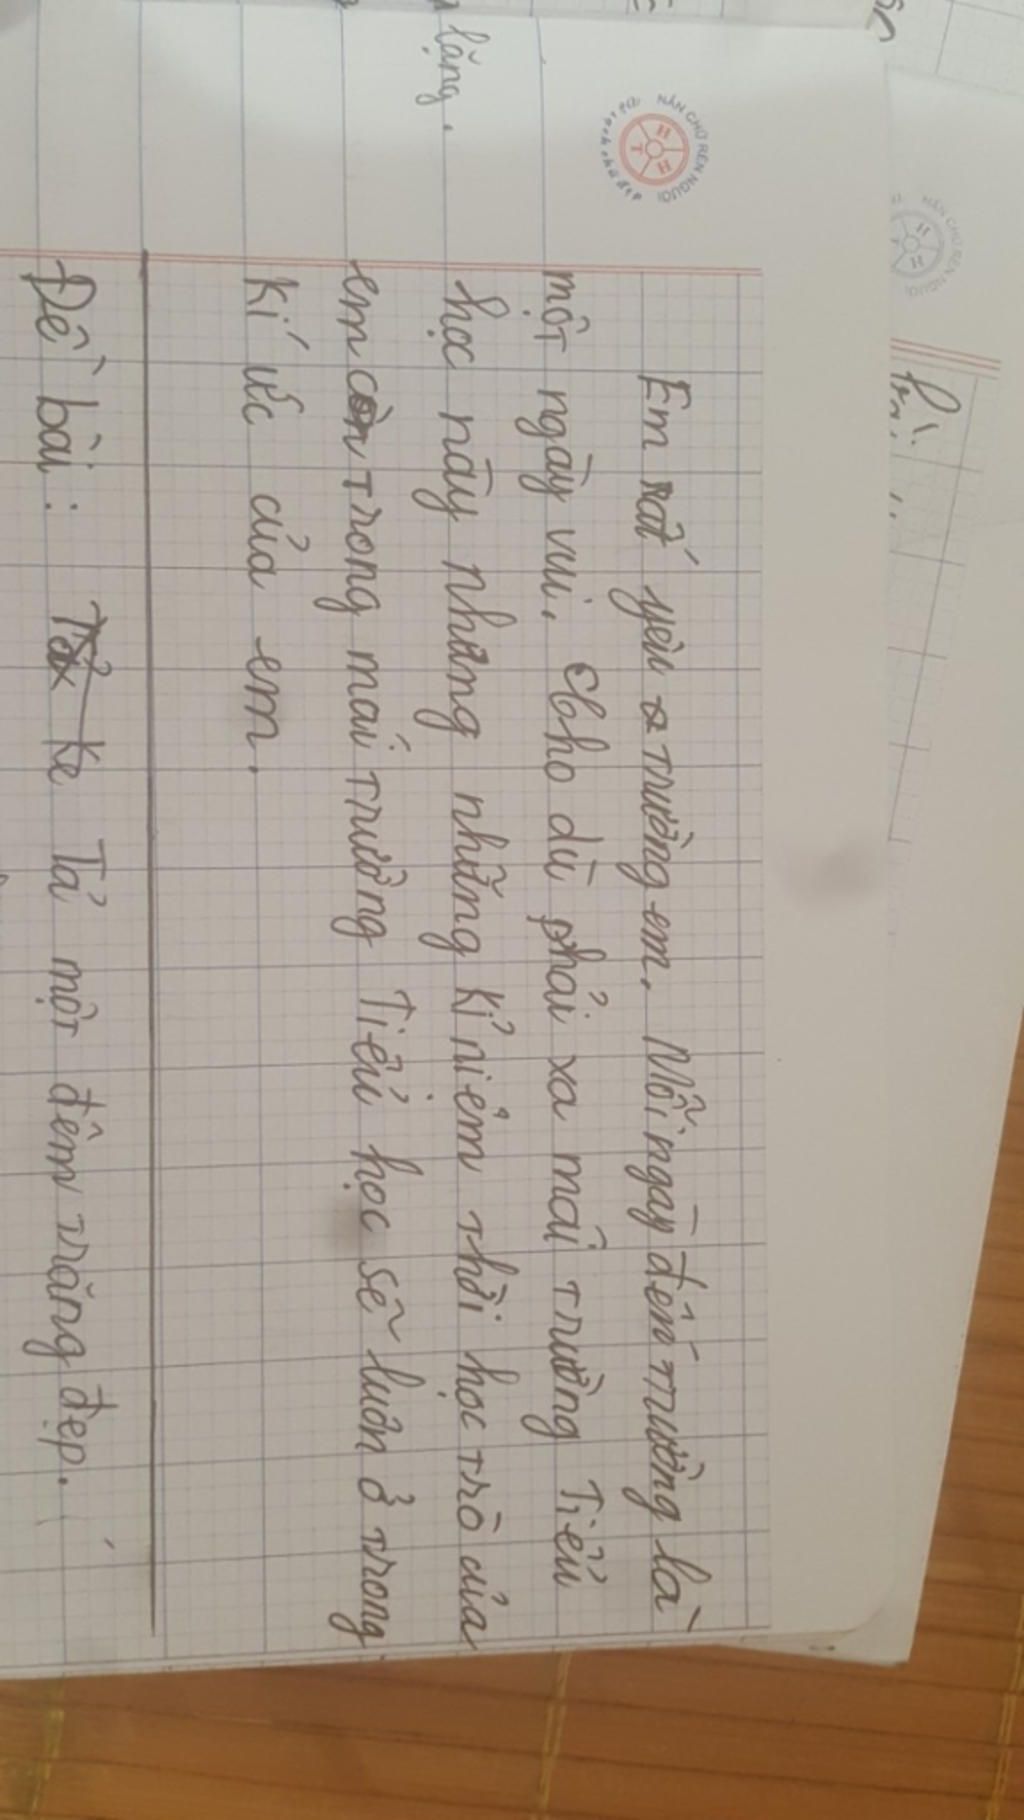 Em rất yêu trường em. Mỗi ngày đến trường là
một ngày vui. Cho dù phải xa mái trường Tiểu
học này nhưng những kỉ niệm thời học trò của
em còn trong mái trường Tiểu học sẽ luôn ở trong
kí ức của em.
Đề bài: Kể Tả một đêm trăng đẹp.
lặng.
NẮN CHỮ RÈN NGƯỜI
H
T
H
NẮN CHỮ RÈN NGƯỜI
H
H